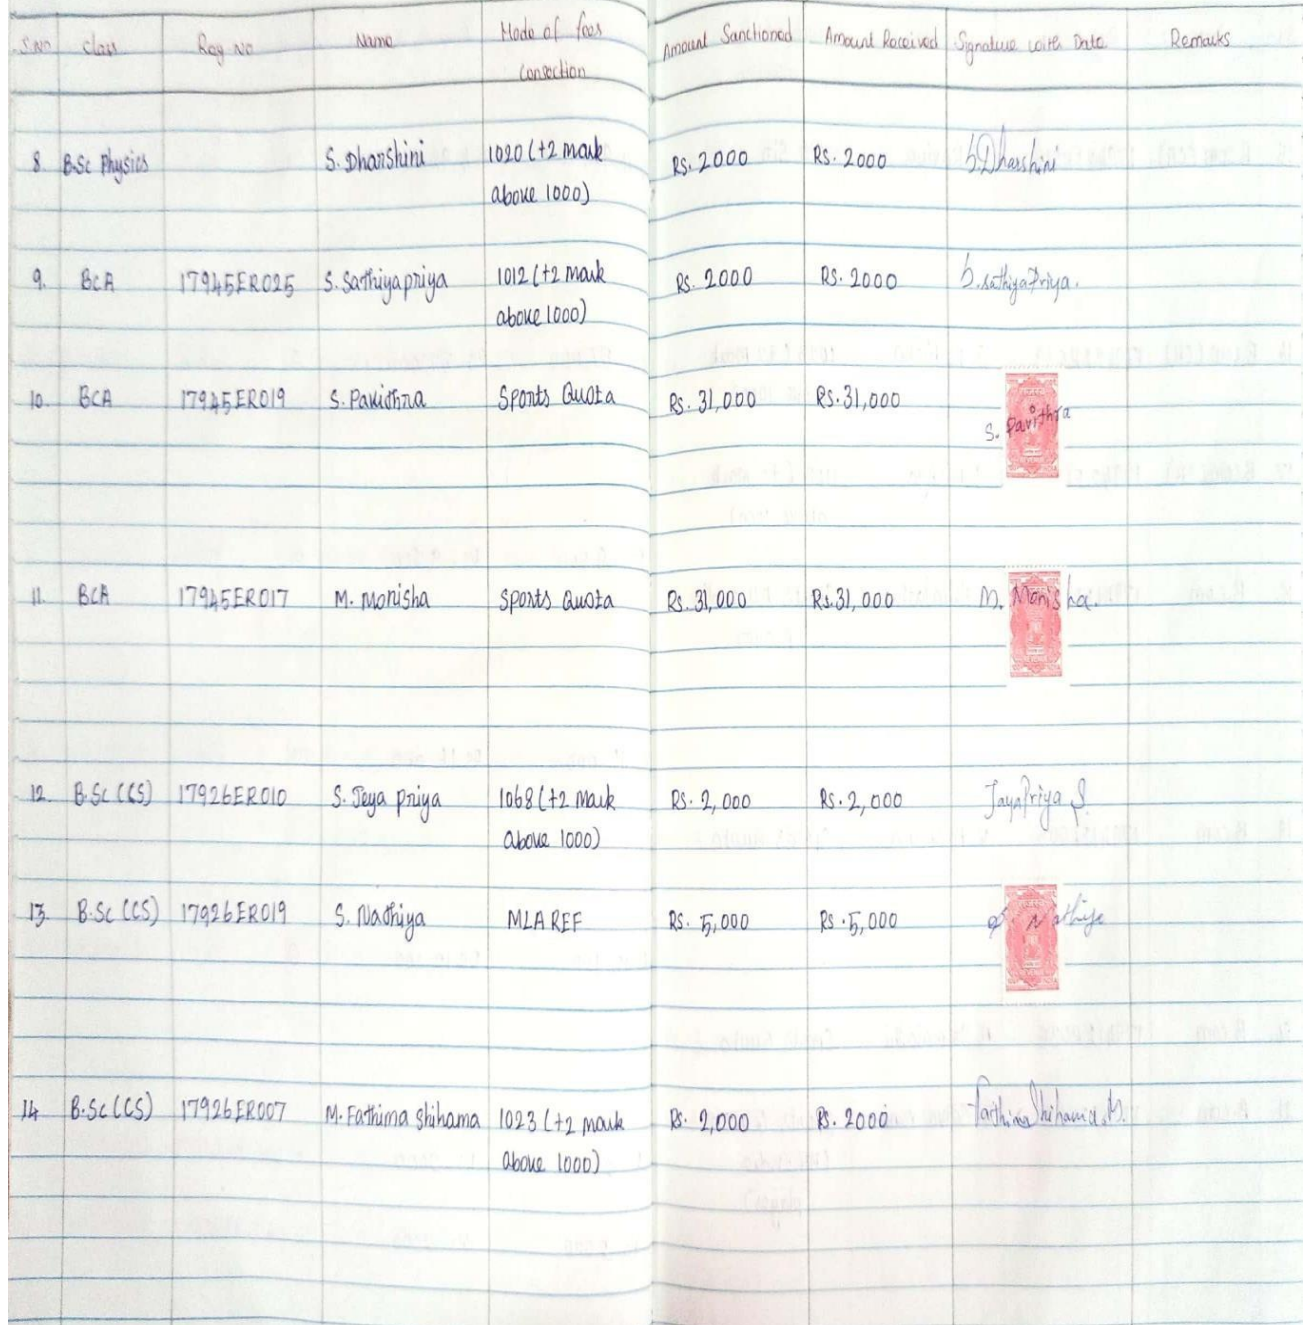 S.No Class Reg No Name Mode of fees Amount Sanctioned Amount Received Signature with Date Remarks
Consection
8. B.Sc Physics S. Dharshini 1020 (+2 mark Rs. 2000 Rs. 2000 S.Dharshini
above 1000)
9. BCA 17945ER025 S. Sathiyapriya 1012 (+2 mark Rs. 2000 Rs. 2000 S.SathiyaPriya.
above 1000)
10. BCA 17945ER019 S. Pavithra Sports Quota Rs. 31,000 Rs. 31,000
S. Pavithra
11. BCA 17945ER017 M. Monisha Sports Quota Rs. 31,000 Rs. 31,000 M. Monisha.
12. B.Sc (CS) 17926ER010 S. Jeya priya 1068 (+2 mark Rs. 2,000 Rs. 2,000 JayaPriya S.
above 1000)
13. B.Sc (CS) 17926ER019 S. Nathiya MLA REF Rs. 5,000 Rs. 5,000 S. Nathiya
14 B.Sc (CS) 17926ER007 M. Fathima Shihama 1023 (+2 mark Rs. 2,000 Rs. 2000
above 1000)